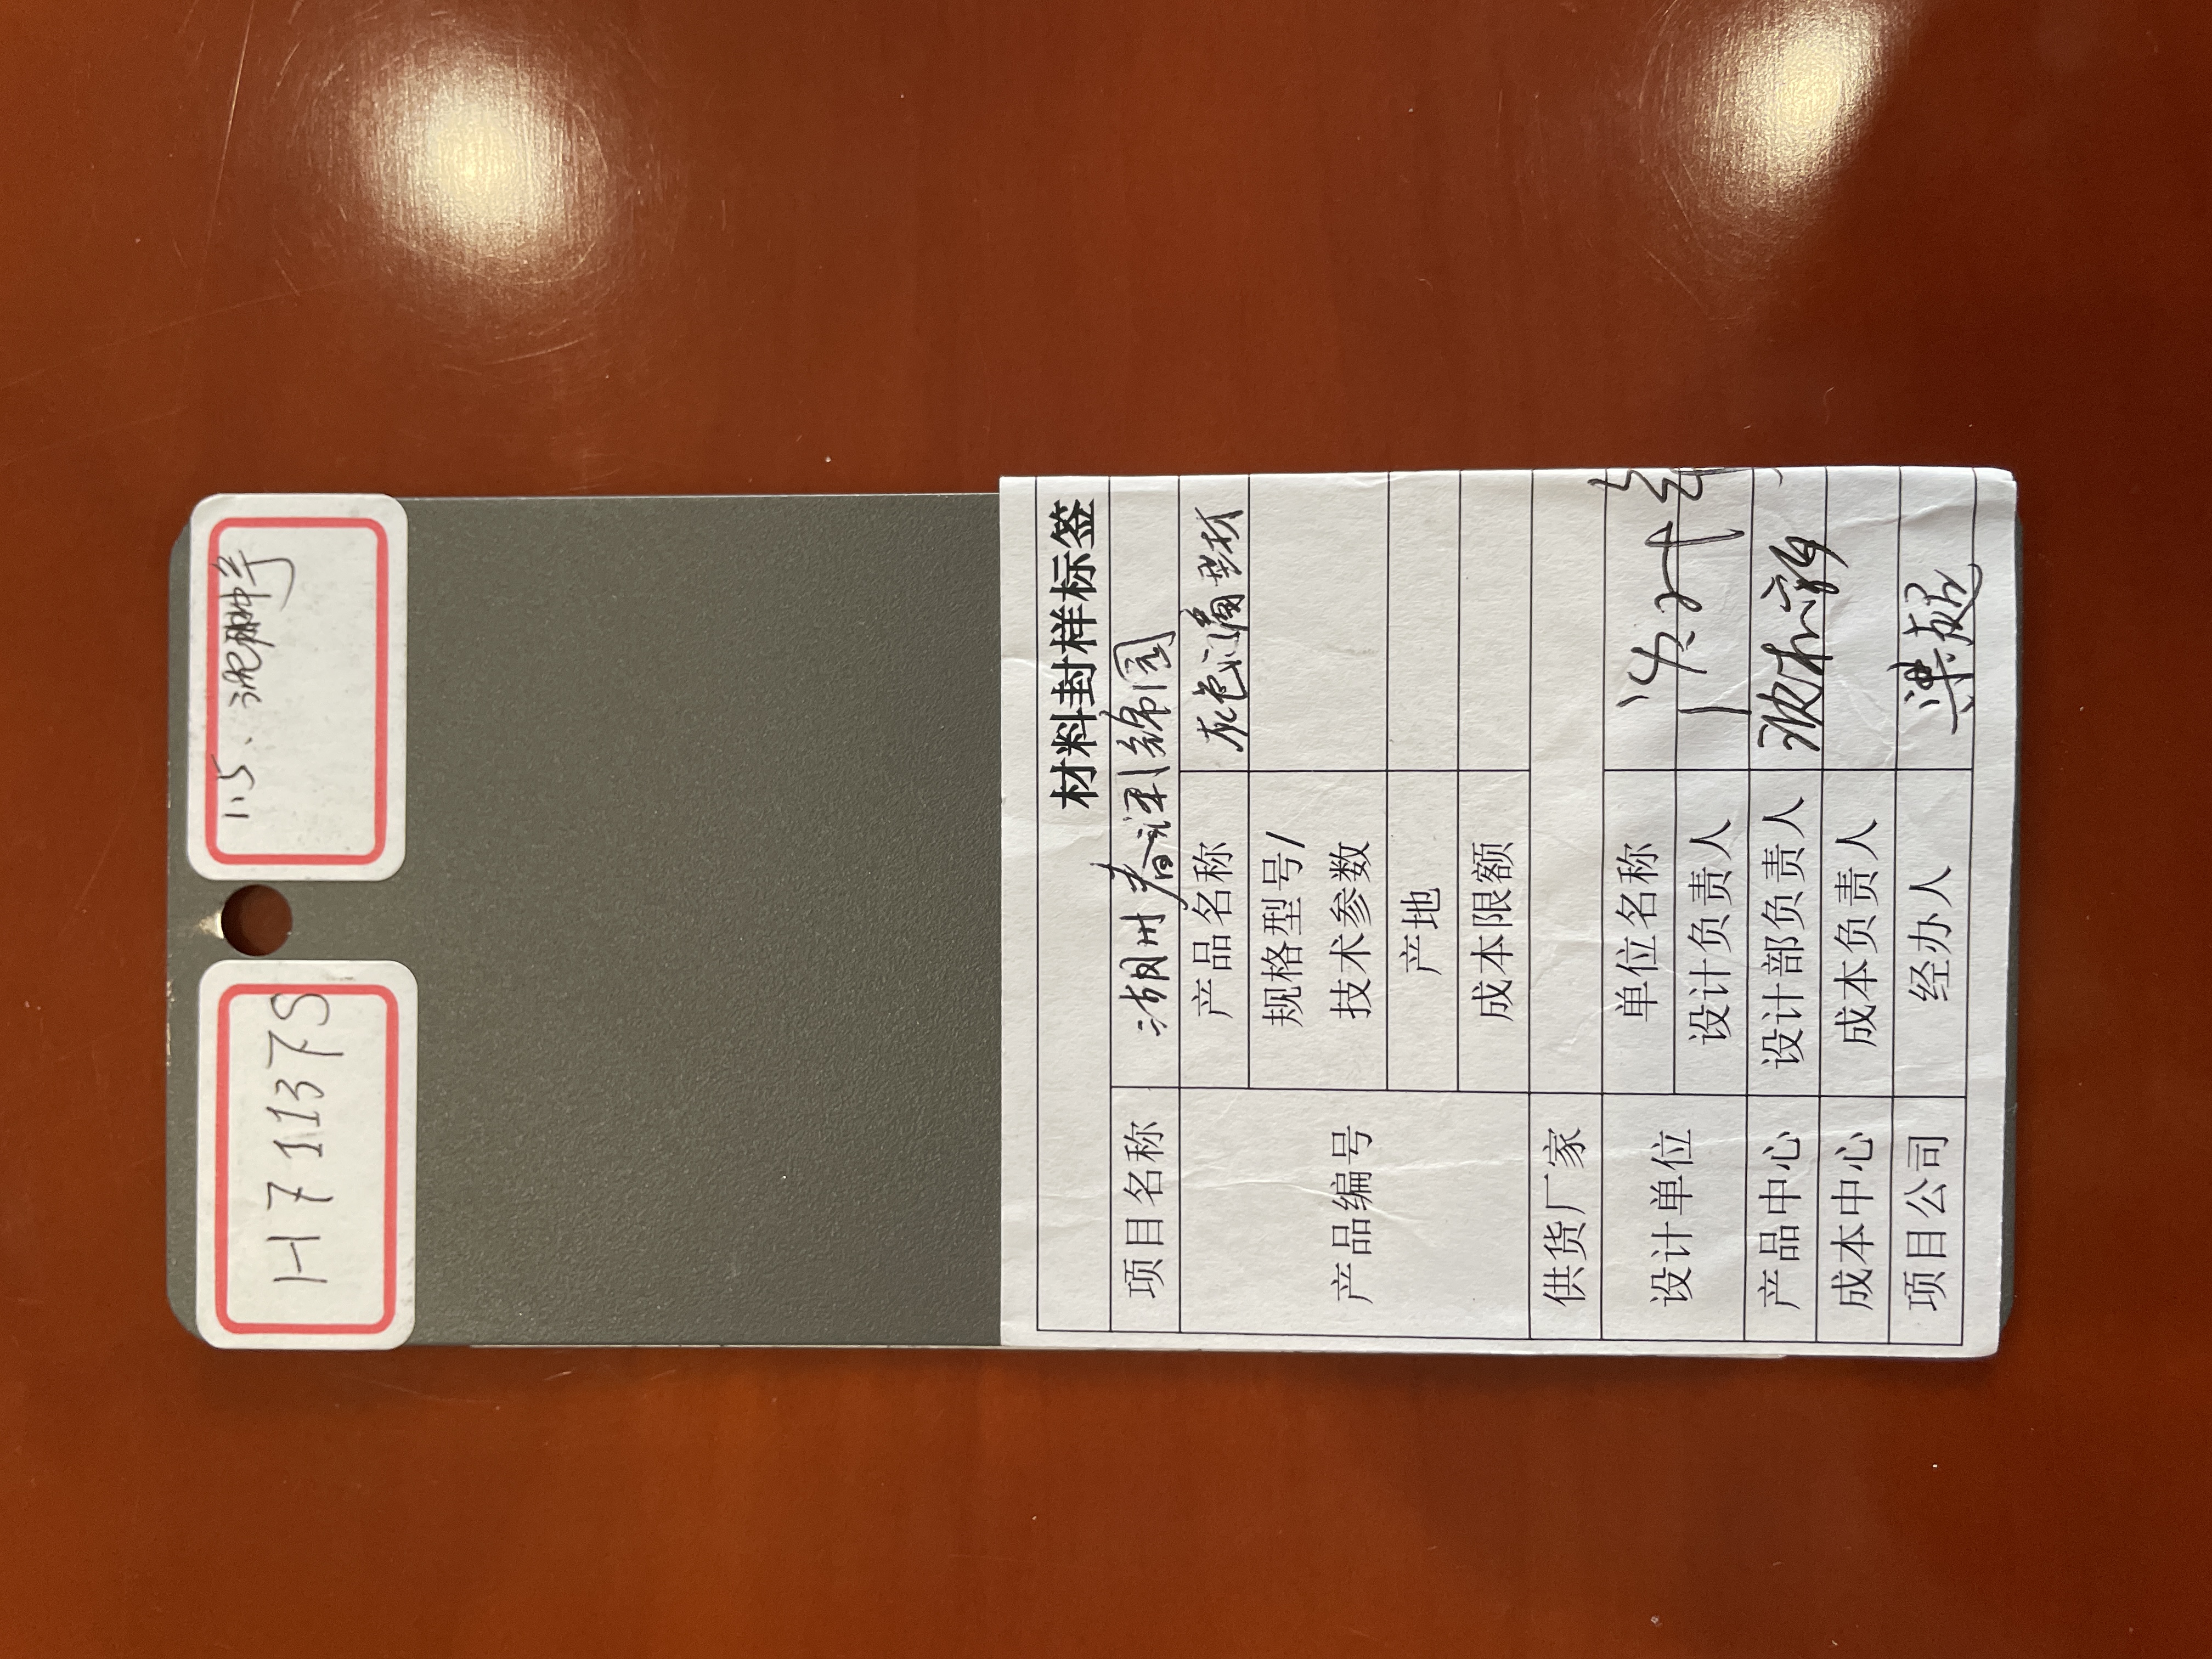 H71137S
11.5、
材料封样标签
项目名称 湖州春澜锦园
产品编号
产品名称 灰色门窗型材
规格型号/
技术参数
产地
成本限额
供货厂家
设计单位
单位名称
设计负责人
产品中心 设计部负责人
成本中心 成本负责人
项目公司 经办人 梁超